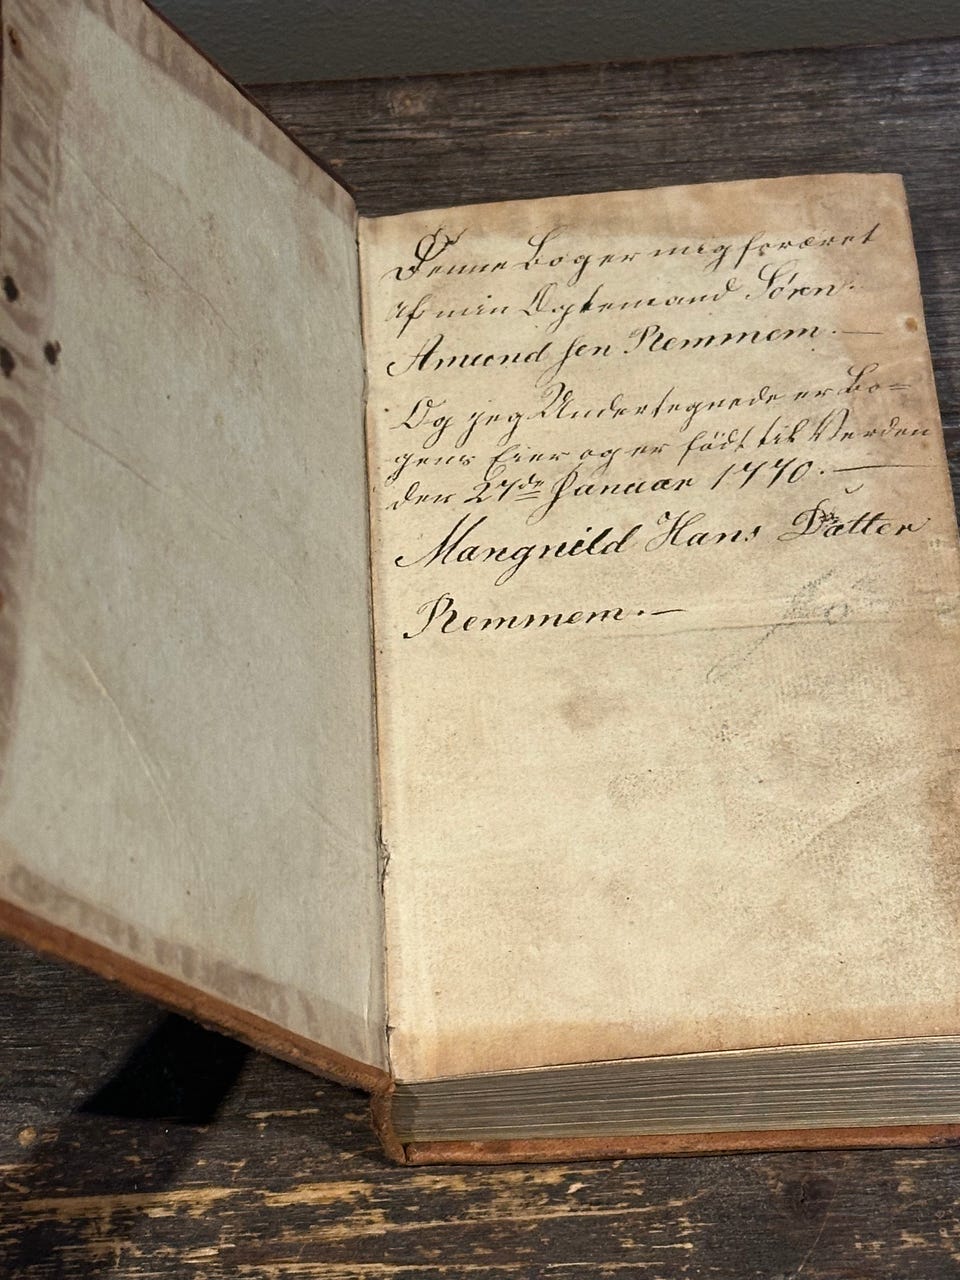 Denne Bog er mig foræret
af min Ægtemand Sören.
Amund sen Remmem.—
Og jeg Undertegnede er Bo=
gens Eier og er födt til Verden
den 27de Januar 1770.—
Mangnild Hans Datter
Remmem.—